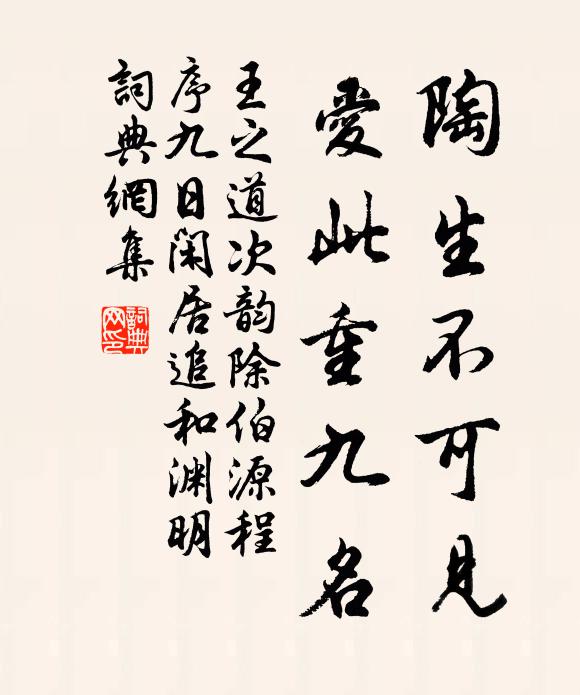 陶生不可見
愛此重九名
王之道次韵除伯源程
序九日閑居追和渊明
詞典網集
詞典网印